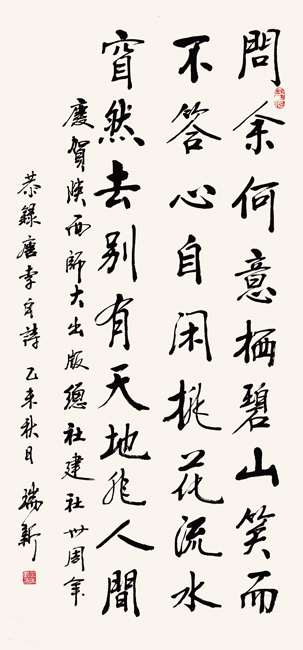 問余何意栖碧山笑而
不答心自閑桃花流水
窅然去別有天地非人間
慶賀陝西師大出版總社建社卅周年
恭錄唐李白詩 乙未秋日 瑞新